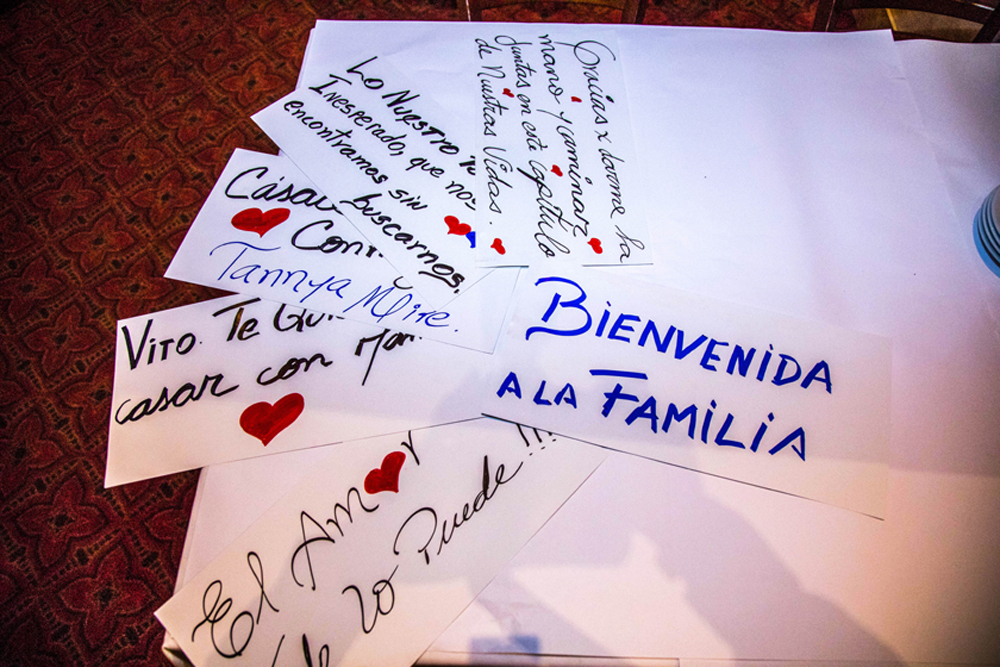 Gracias x darme la
mano y caminar
Juntas en este capítulo
de Nuestras Vidas.
Lo Nuestro
Inesperado, que nos
encontramos sin
buscarnos.
Casar
Con
Tannya Mite.
Vito. Te
casar con
Bienvenida
a la Familia
El Amor
lo Puede!!!